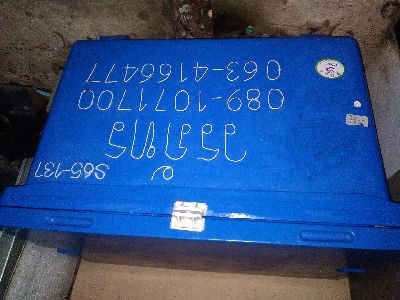 S65-137
วรภัทร
089-1071700
063-4166477